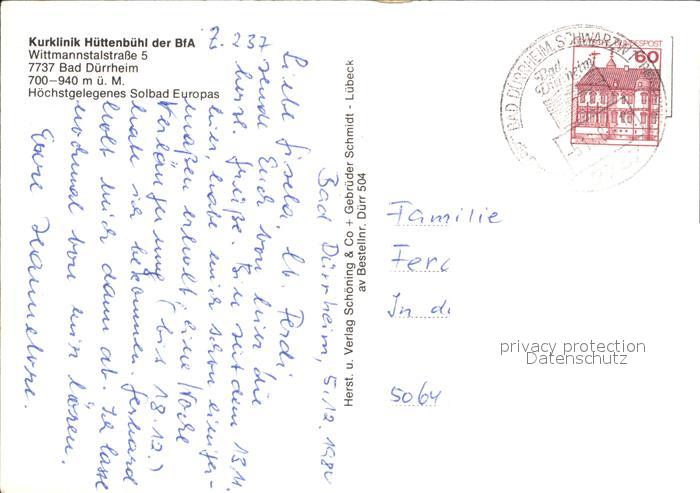 Kurklinik Hüttenbühl der BfA
Wittmannstalstraße 5
7737 Bad Dürrheim
700–940 m ü. M.
Höchstgelegenes Solbad Europas
Z. 237
Bad Dürrheim, 5.12.198
Liebe Gisela, lb. Ferdi
sende Euch von hier die
herzl. Grüße. Bin seit dem 13.11.
hier, habe mich schon einiger-
maßen erholt, eine Woche
Verlängerung (bis 18.12.)
habe ich bekommen. Gerhard
holt mich dann ab. Ich lasse
nochmal von mir hören.
Eure Hannelore.
Herst. u. Verlag Schöning & Co + Gebrüder Schmidt - Lübeck
av Bestellnr. Dürr 504
BAD DÜRRHEIM, SCHWARZW
Bad Dürrheim
BUNDESPOST
60
Familie
Ferd
In d
privacy protection
Datenschutz
5064